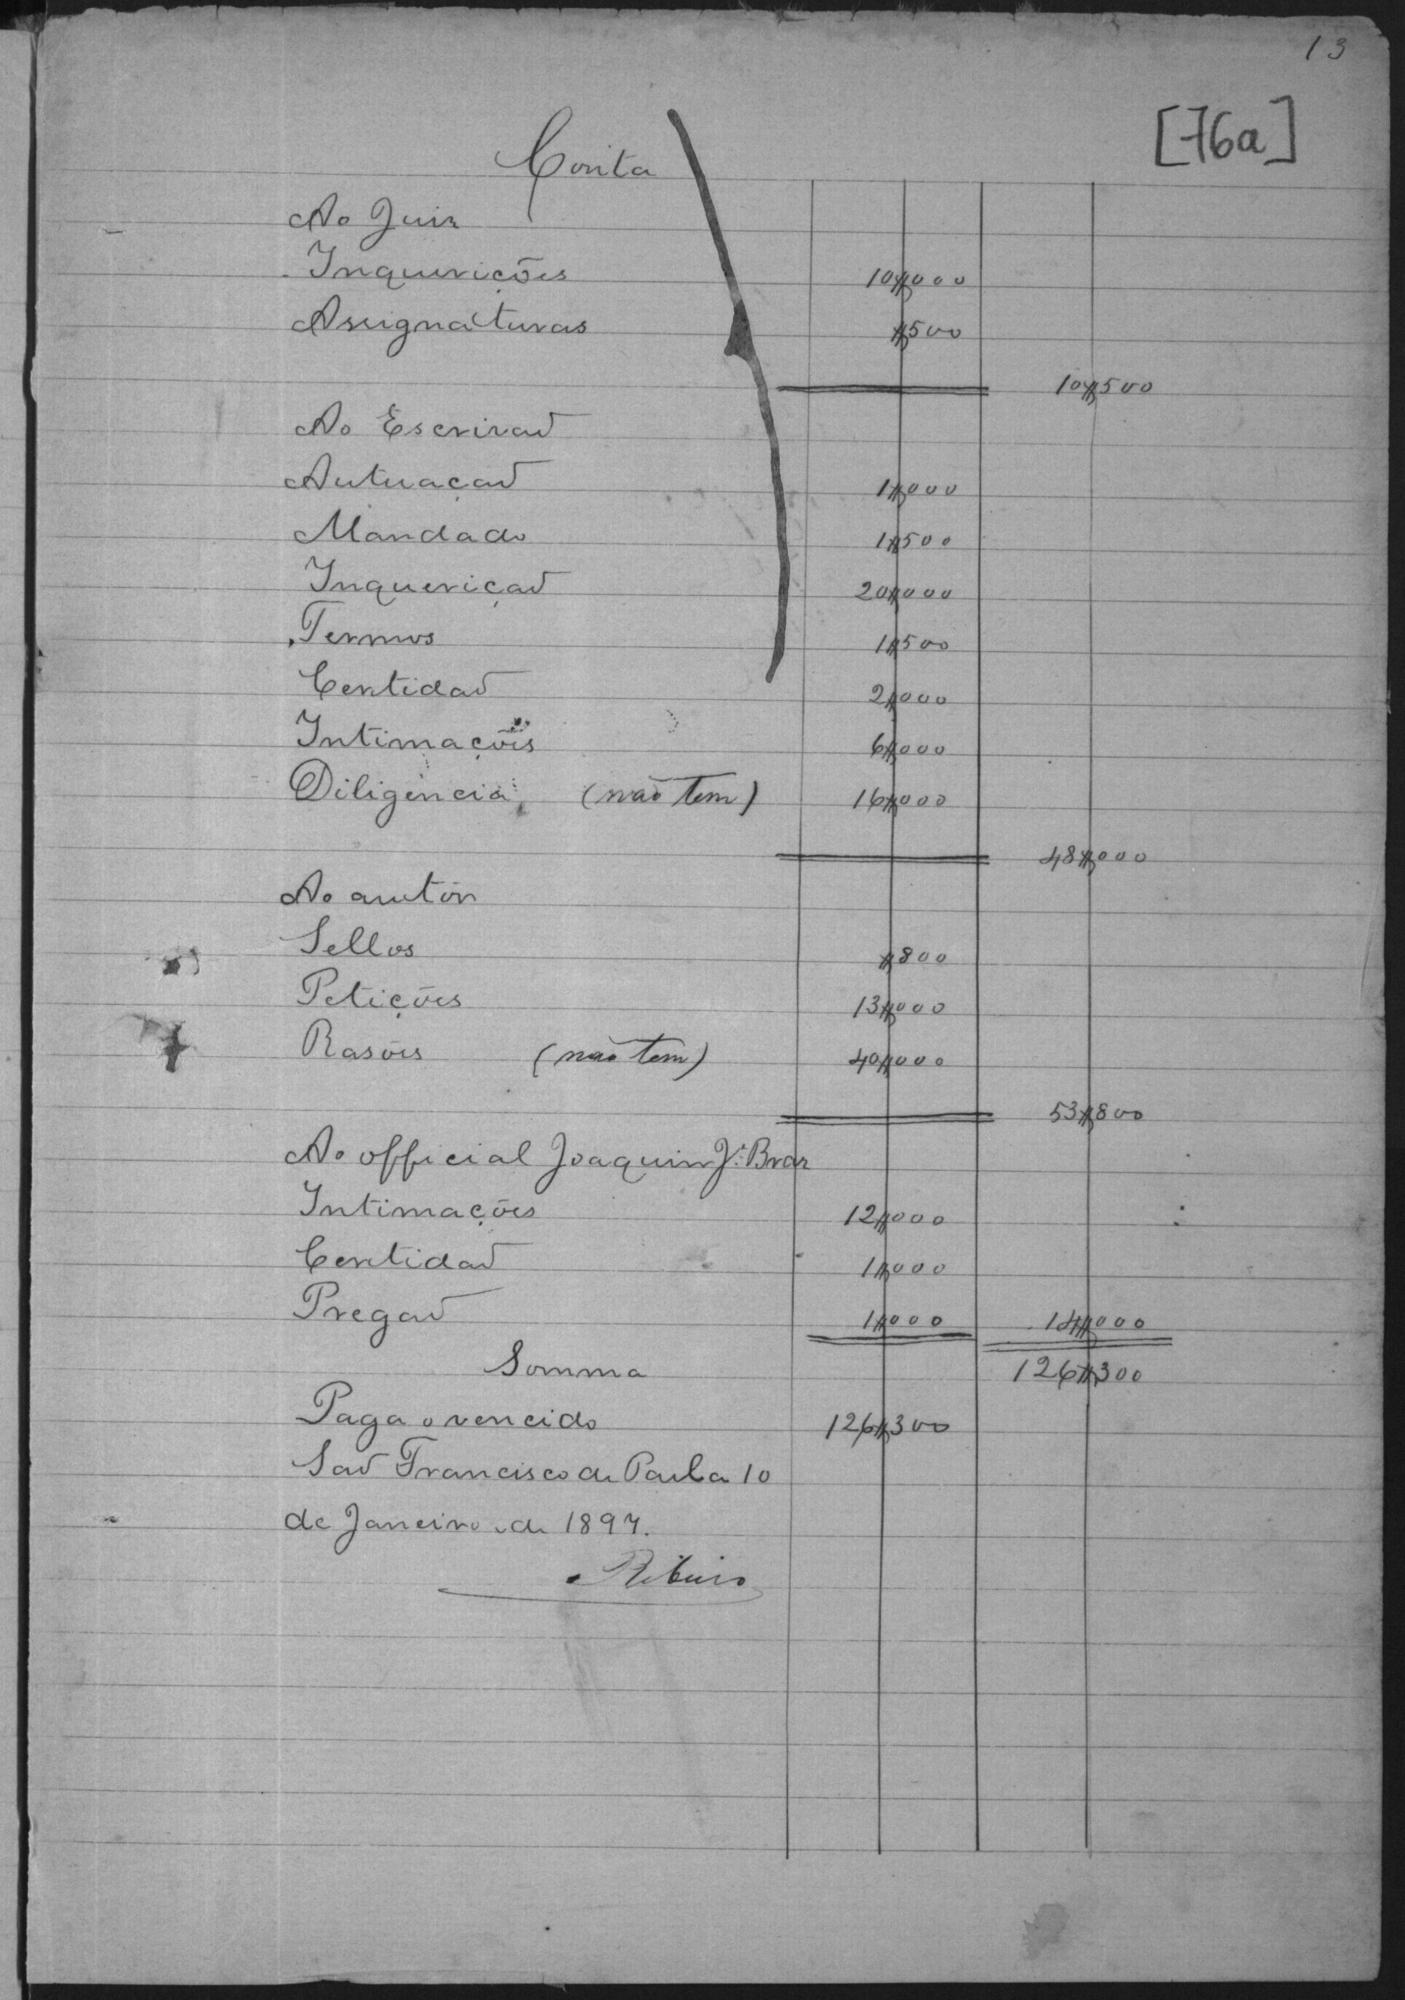 13
[76a]
Conta
Ao Juiz
Inquirições 10$000
Assignaturas $500
10$500
Ao Escrivaõ
Autuaçaõ 1$000
Mandado 1$500
Inqueriçaõ 20$000
Termos 1$500
Certidaõ 2$000
Intimações 6$000
Diligencia (não tem) 16$000
48$000
Ao autor
Sellos $800
Petições 13$000
Rasões (não tem) 40$000
53$800
Ao official Joaquim J.ᵉ Braz
Intimações 12$000
Certidaõ 1$000
Pregaõ 1$000 14$000
Somma 126$300
Paga o vencido 126$300
Saõ Francisco de Paula 10
de Janeiro de 1897.
Ribeiro